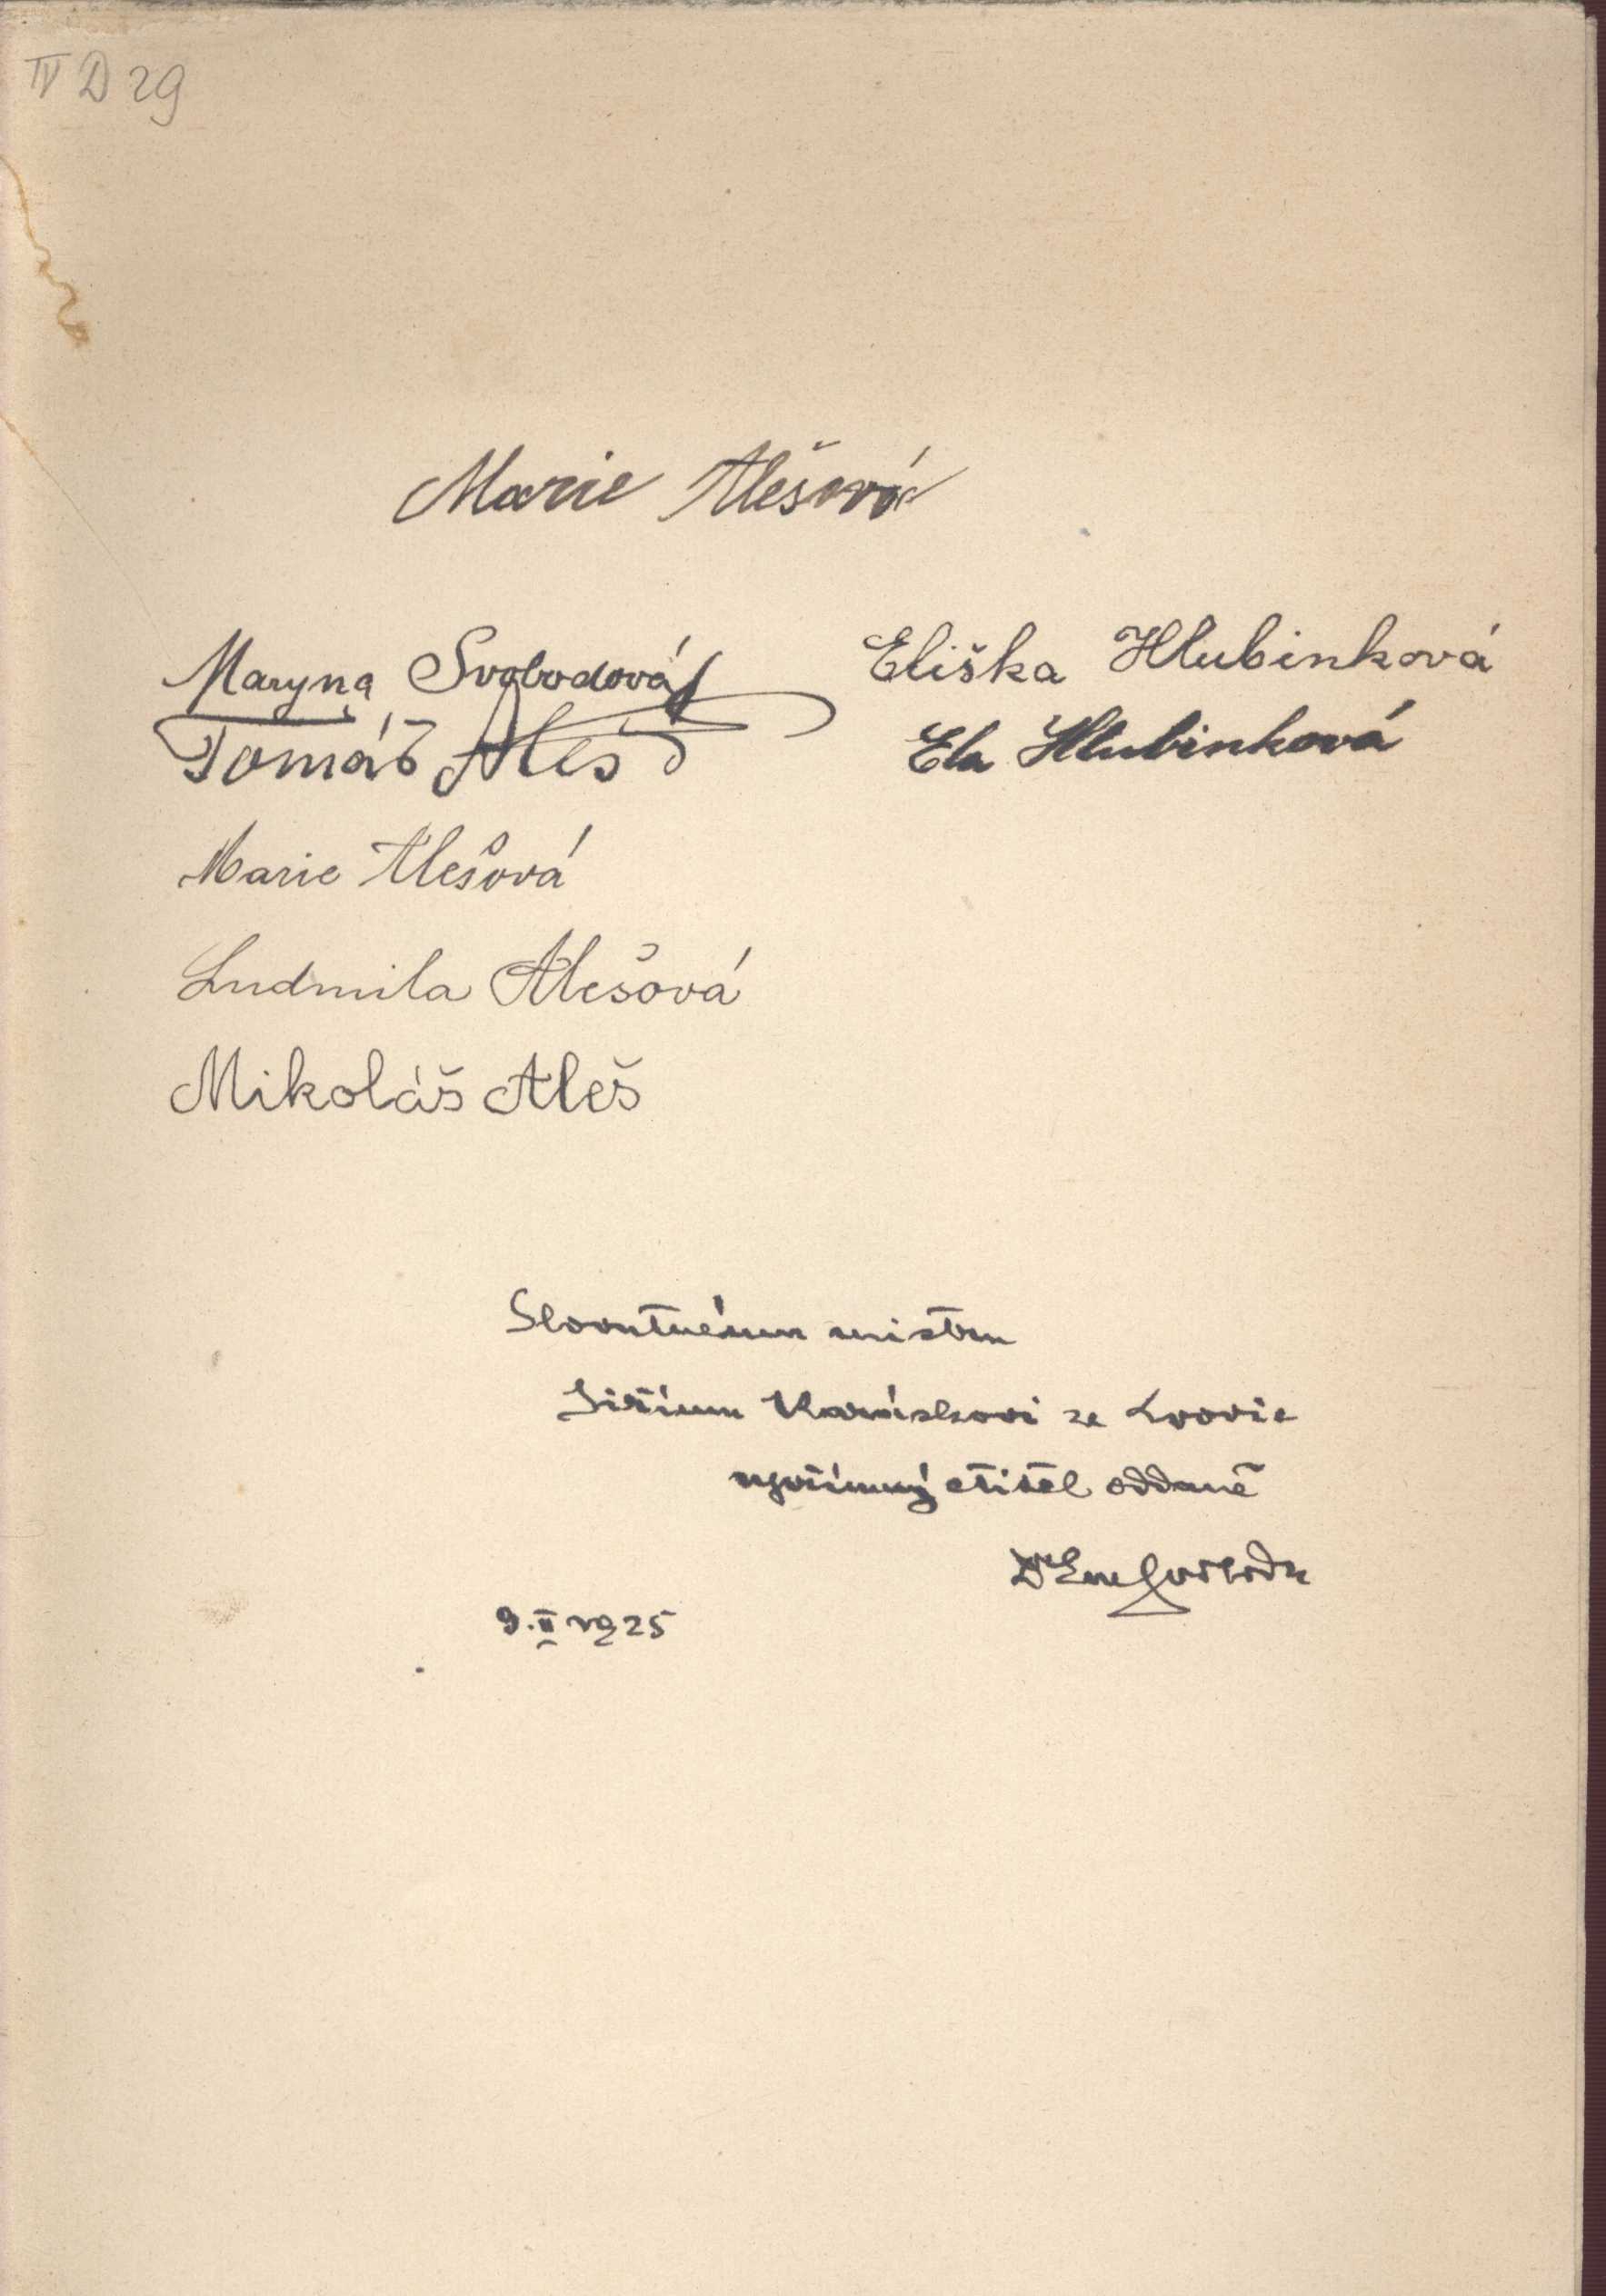 IV D 29
Marie Alešová
Maryna Svobodová
Eliška Hlubinková
Tomáš Aleš
Ela Hlubinková
Marie Alešová
Ludmila Alešová
Mikoláš Aleš
Slovutnému mistru
Jiřímu Karáskovi ze Lvovic
upřímný ctitel oddaně
Dr Em Svoboda
9. II 1925